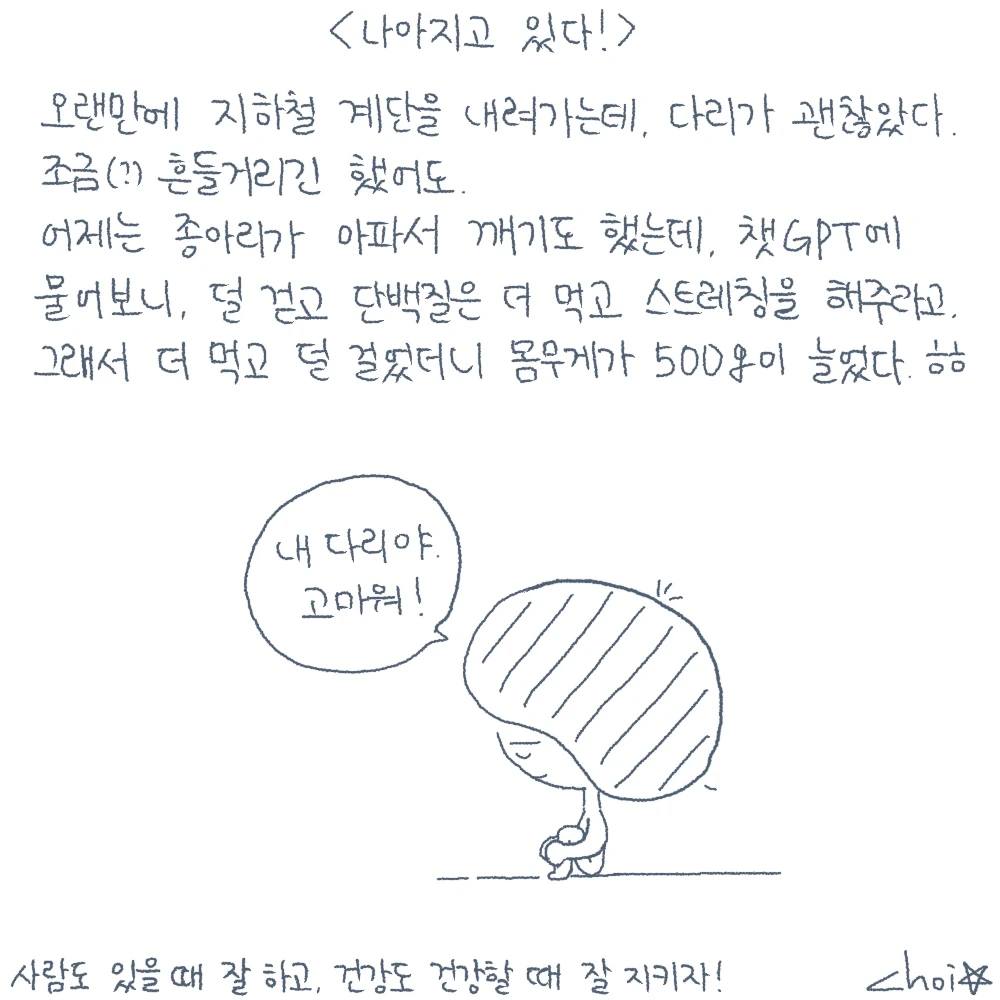 <나아지고 있다!>
오랜만에 지하철 계단을 내려가는데, 다리가 괜찮았다.
조금(?) 흔들거리긴 했어도.
어제는 종아리가 아파서 깨기도 했는데, 챗GPT에
물어보니, 덜 걷고 단백질은 더 먹고 스트레칭을 해주라고.
그래서 더 먹고 덜 걸었더니 몸무게가 500g이 늘었다. ㅎㅎ
내 다리야.
고마워!
사람도 있을 때 잘 하고, 건강도 건강할 때 잘 지키자!
choi